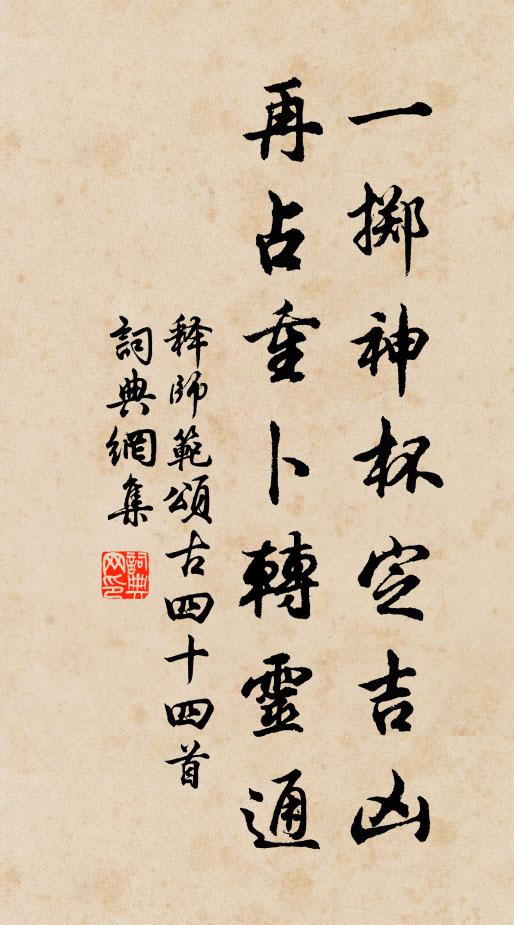 一擲神杯定吉凶
再占重卜轉靈通
释師範頌古四十四首
詞典網集
詞典网印